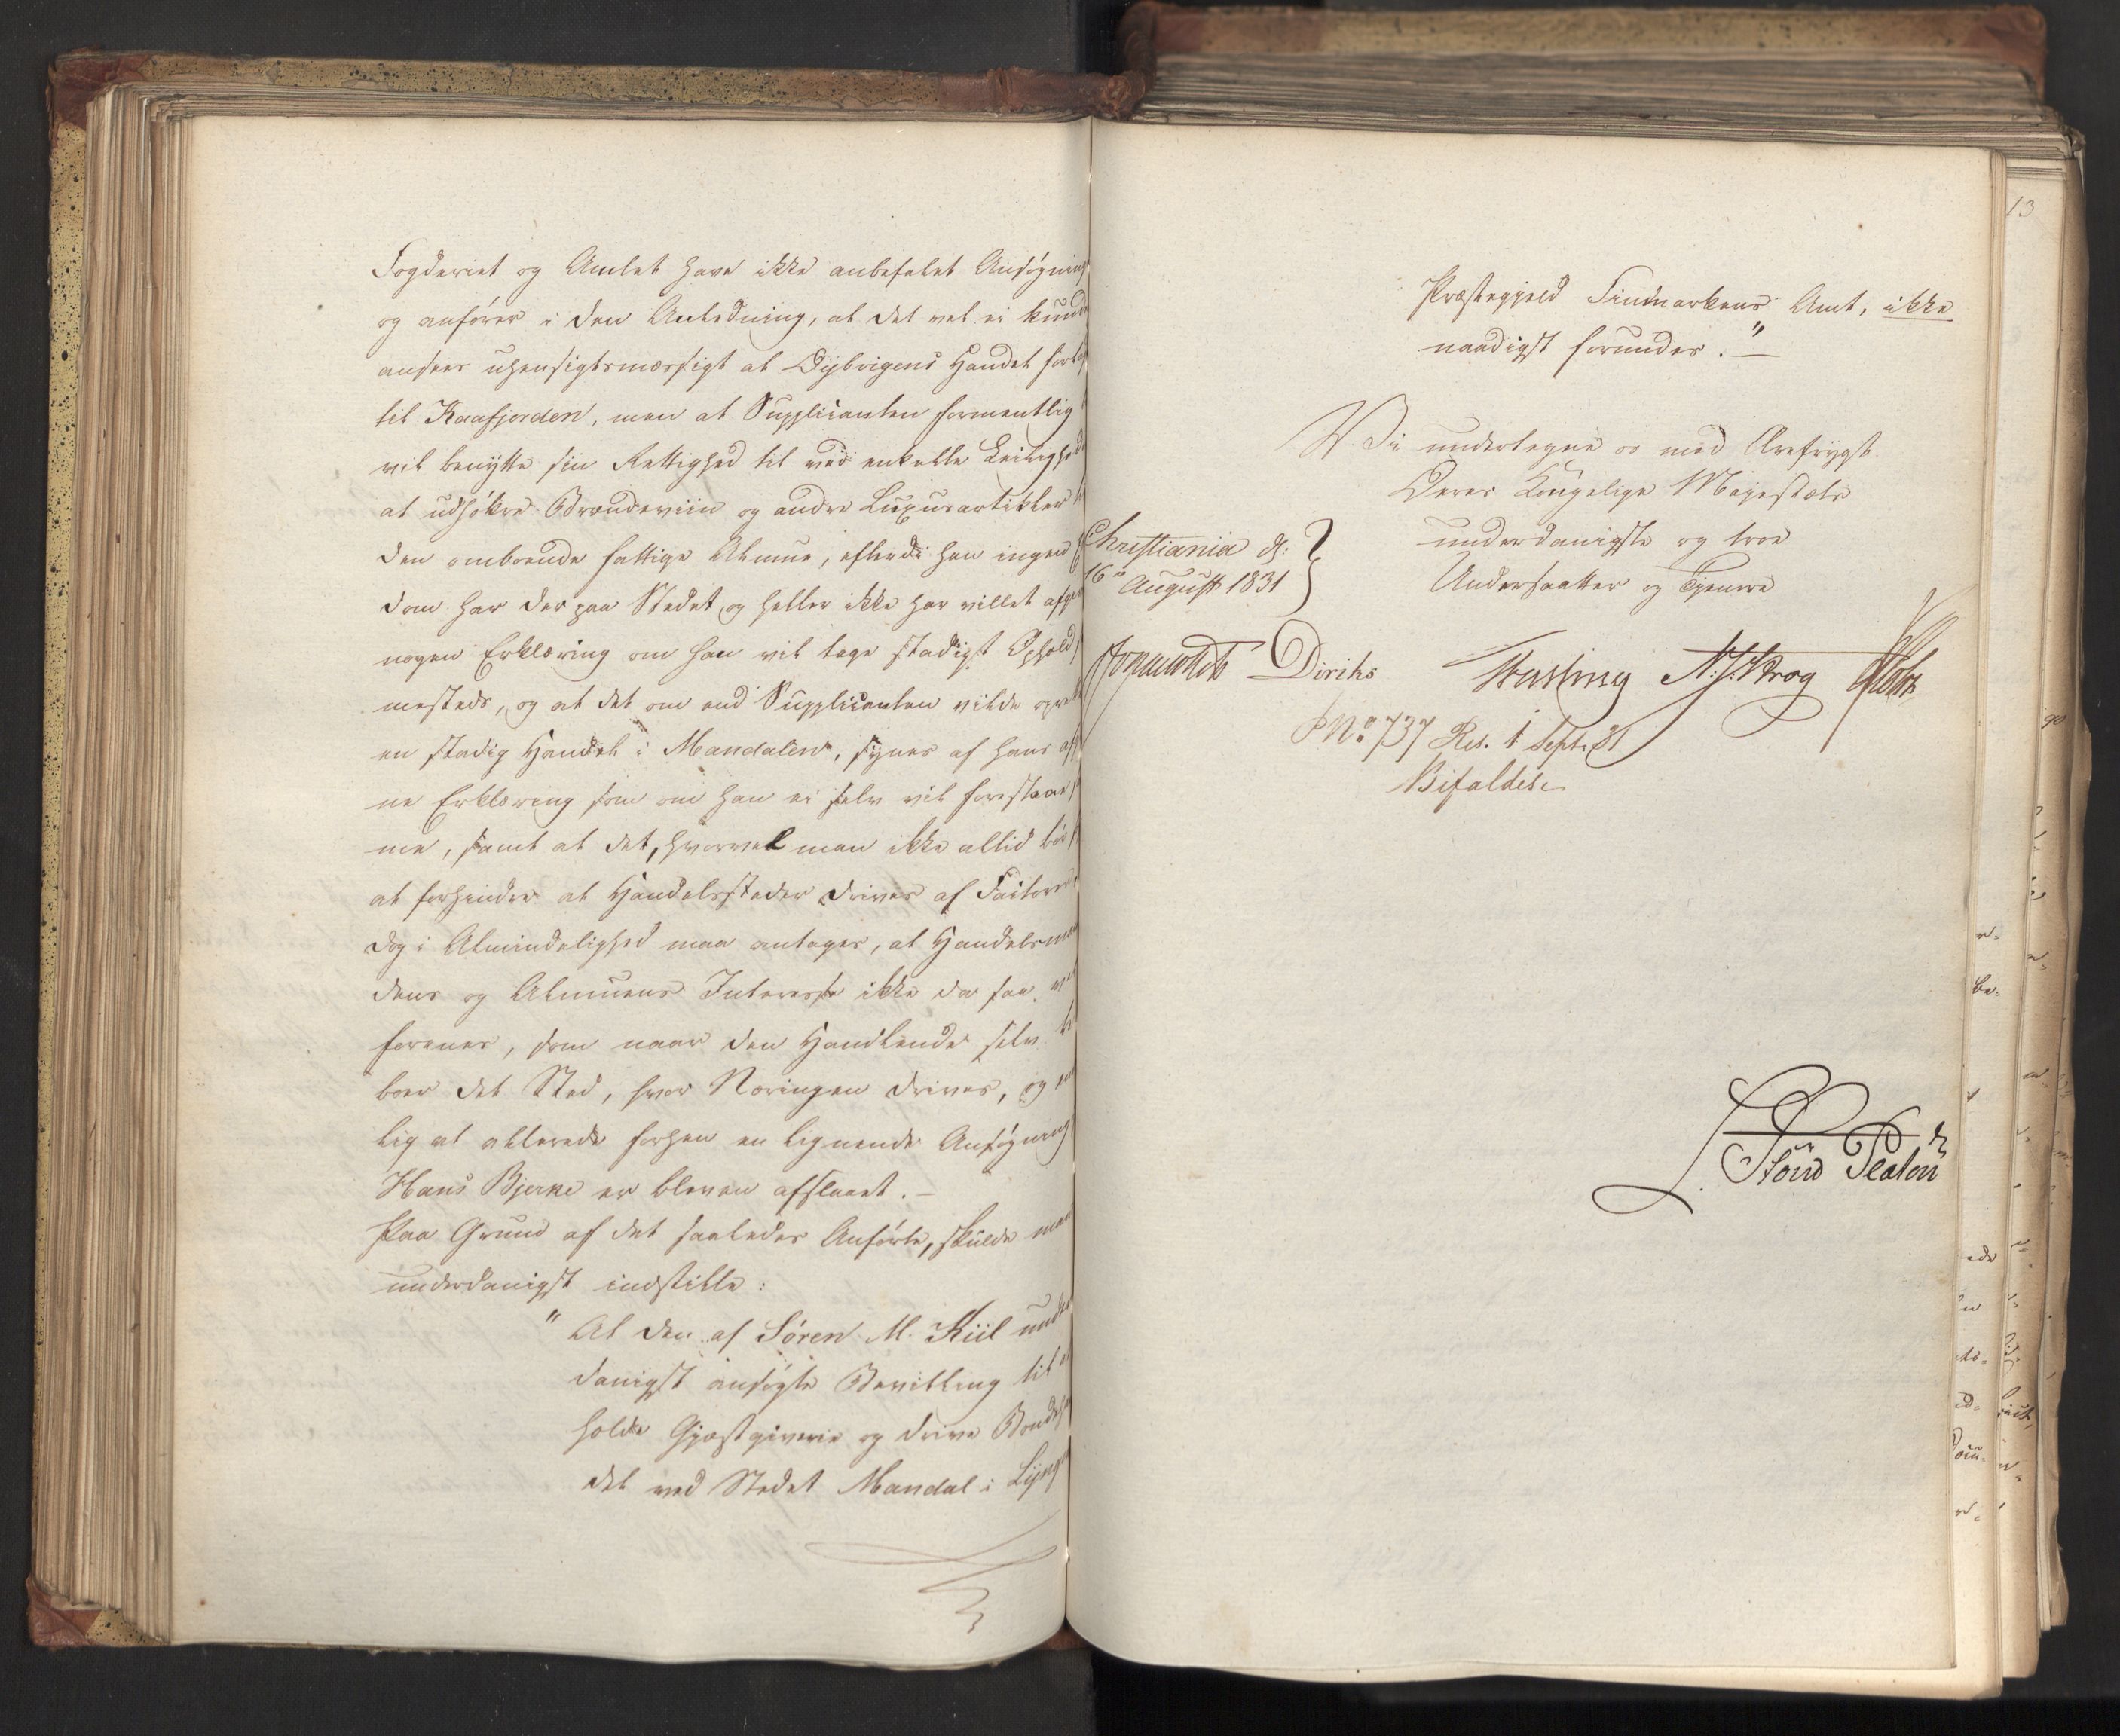 Fogderiet og Amtet have ikke anbefalet Ansøgning
og anfører i den Anledning, at det vel ei kunde
ansees uhensigtsmæssigt at Dybvigens Handel forlag
til Kaafjorden, men at Supplicanten formentlig
vil benytte sin Rettighed til ved enkelte Leilighed
at udhøkre Brændeviin og andre Luxusartikler
den omboende fattige Almue, efterdi han ingen
dom har der paa Stedet, og heller ikke har villet afgive
nogen Erklæring om han vil tage stadigt Ophold
mesteds, og at det om end Supplicanten vilde oprette
en stadig Handel i Mandalen, synes af hans af
ne Erklæring som om han ei selv vil forestaae
me, samt at det, hvorvel man ikke altid bør
at forhindre at Handelssteder drives af Factorer
dog i Almindelighed maa antages, at Handelsman
dens og Almuens Interesse ikke da saa
forenes, som naar den Handlende selv be
boer det Sted, hvor Næringen drives, og
lig at allerede forhen en lignende Ansøgning
Hans Bjerke er bleven afslaaet. –
Paa Grund af det saaledes Anførte, skulde man
underdanigst indstille:
" At den af Søren M. Kiil under
danigst ansøgte Bevilling til
holde Gjæstgiverie og drive Bondeha
del ved Stedet Mandal i Lyng
13
Præstegjeld Finmarkens Amt, ikke
naadigst forundes." –
Vi undertegne os med Ærefrygt
Deres Kongelige Majestæts
underdanigste og troe
Undersaatter og Tjenere
Christiania d:
16 August 1831
Diriks N. J. Krog
No 737 Res. 1 Sept. 31
Bifaldes.